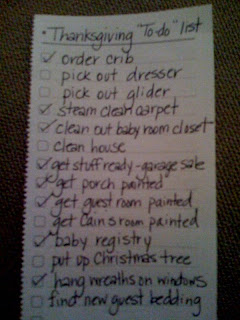 • Thanksgiving "To-do" list
order crib
pick out dresser
pick out glider
steam clean carpet
clean out baby room closet
clean house
get stuff ready - garage sale
get porch painted
get guest room painted
get Cain's room painted
baby registry
put up Christmas tree
hang wreaths on windows
find new guest bedding